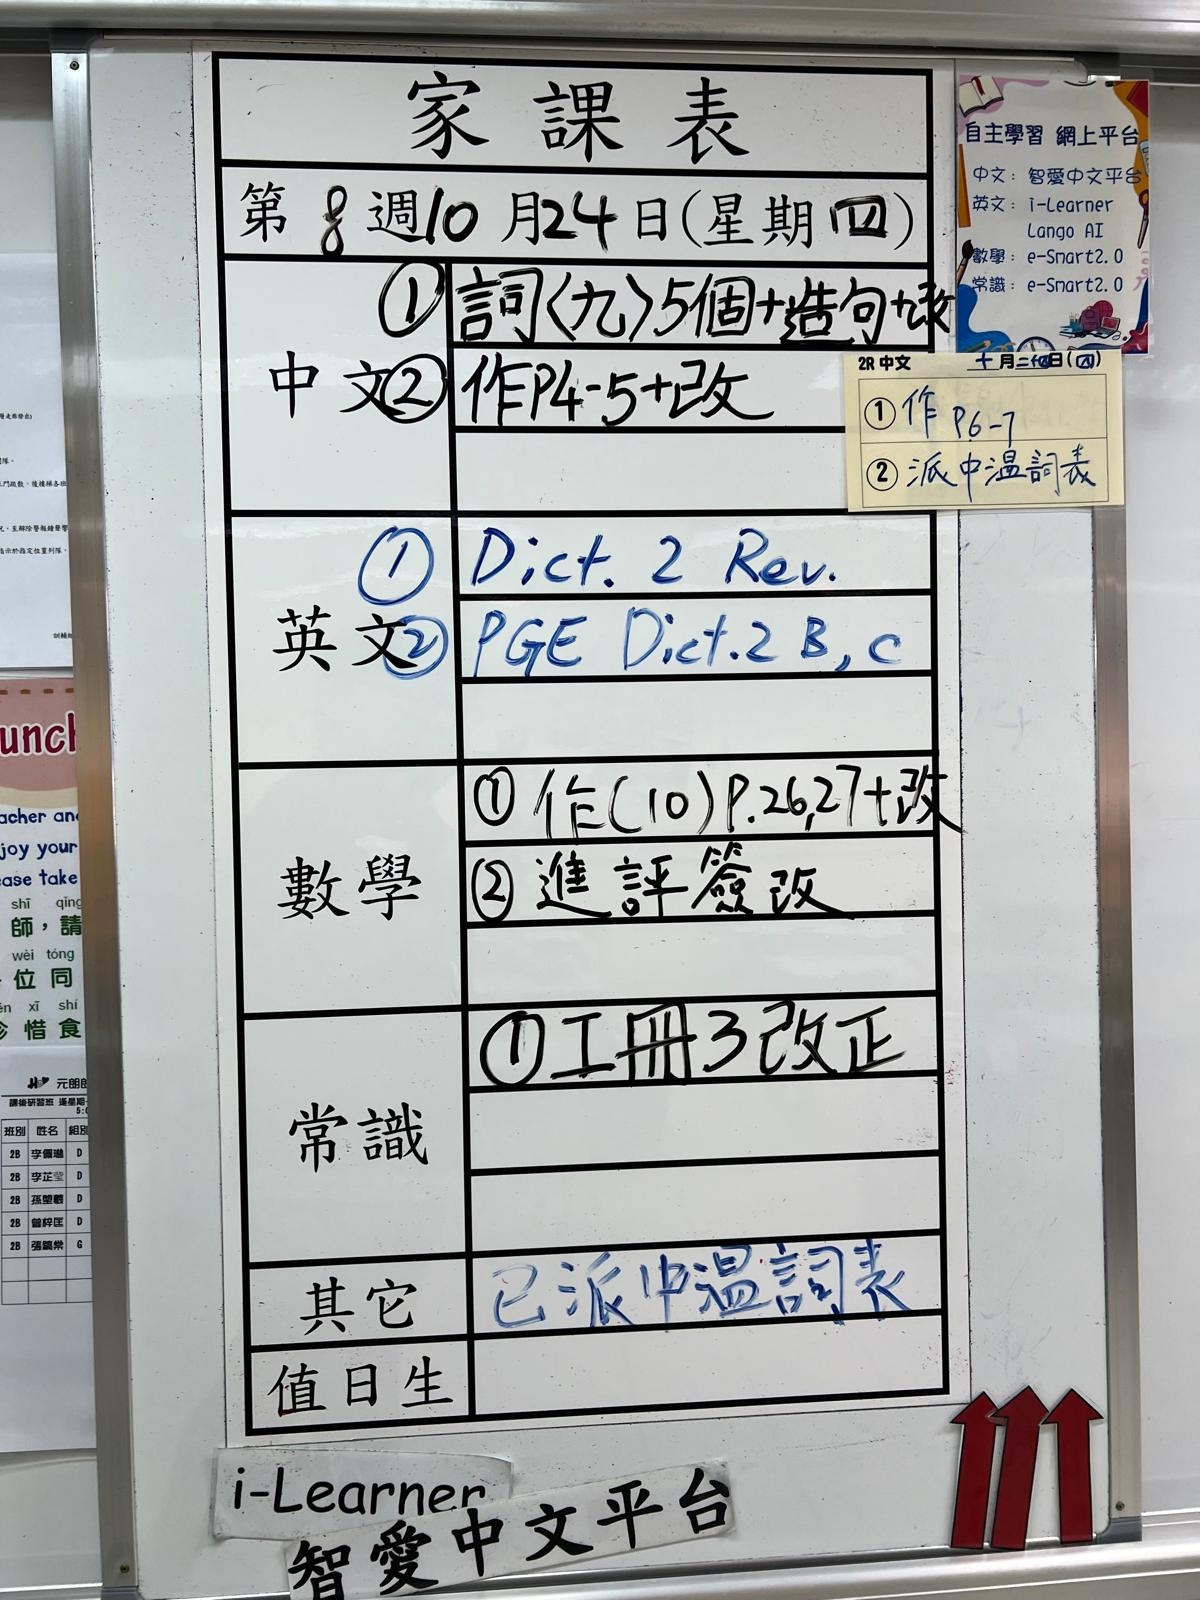 家課表
第8週10月24日(星期四)
中文
①詞〈九〉5個+造句+改
②作P4-5+改
英文
①Dict. 2 Rev.
②PGE Dict.2 B, C
數學
①作(10)P.26,27+改
②進評簽改
常識
①工冊3改正
其它
已派中溫詞表
值日生
i-Learner
智愛中文平台
自主學習 網上平台
中文：智愛中文平台
英文：i-Learner
Lango AI
數學：e-Smart2.0
常識：e-Smart2.0
2R中文 十月二十四日(四)
①作 P6-7
②派中溫詞表
unch
acher and
joy your
ease take
shī qǐng
師，請
wèi tóng
位同
xī shí
惜食
元朗
班別 姓名 組別
2B D
2B D
2B D
2B D
2B G